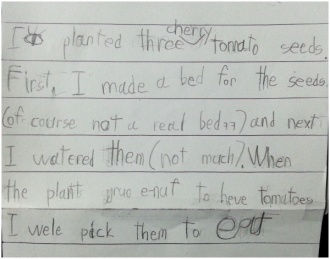 I planted three cherry tomato seeds.
First, I made a bed for the seeds
(of course not a real bed77) and next
I watered them (not much). When
the plant grue e-nuf to heve tomatoes
I wele pick them to eat